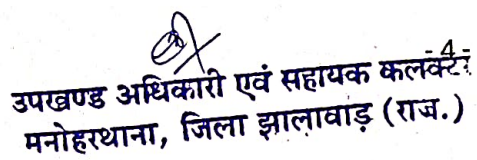 -4-
उपखण्ड अधिकारी एवं सहायक कलक्टर
मनोहरथाना, जिला झालावाड़ (राज.)